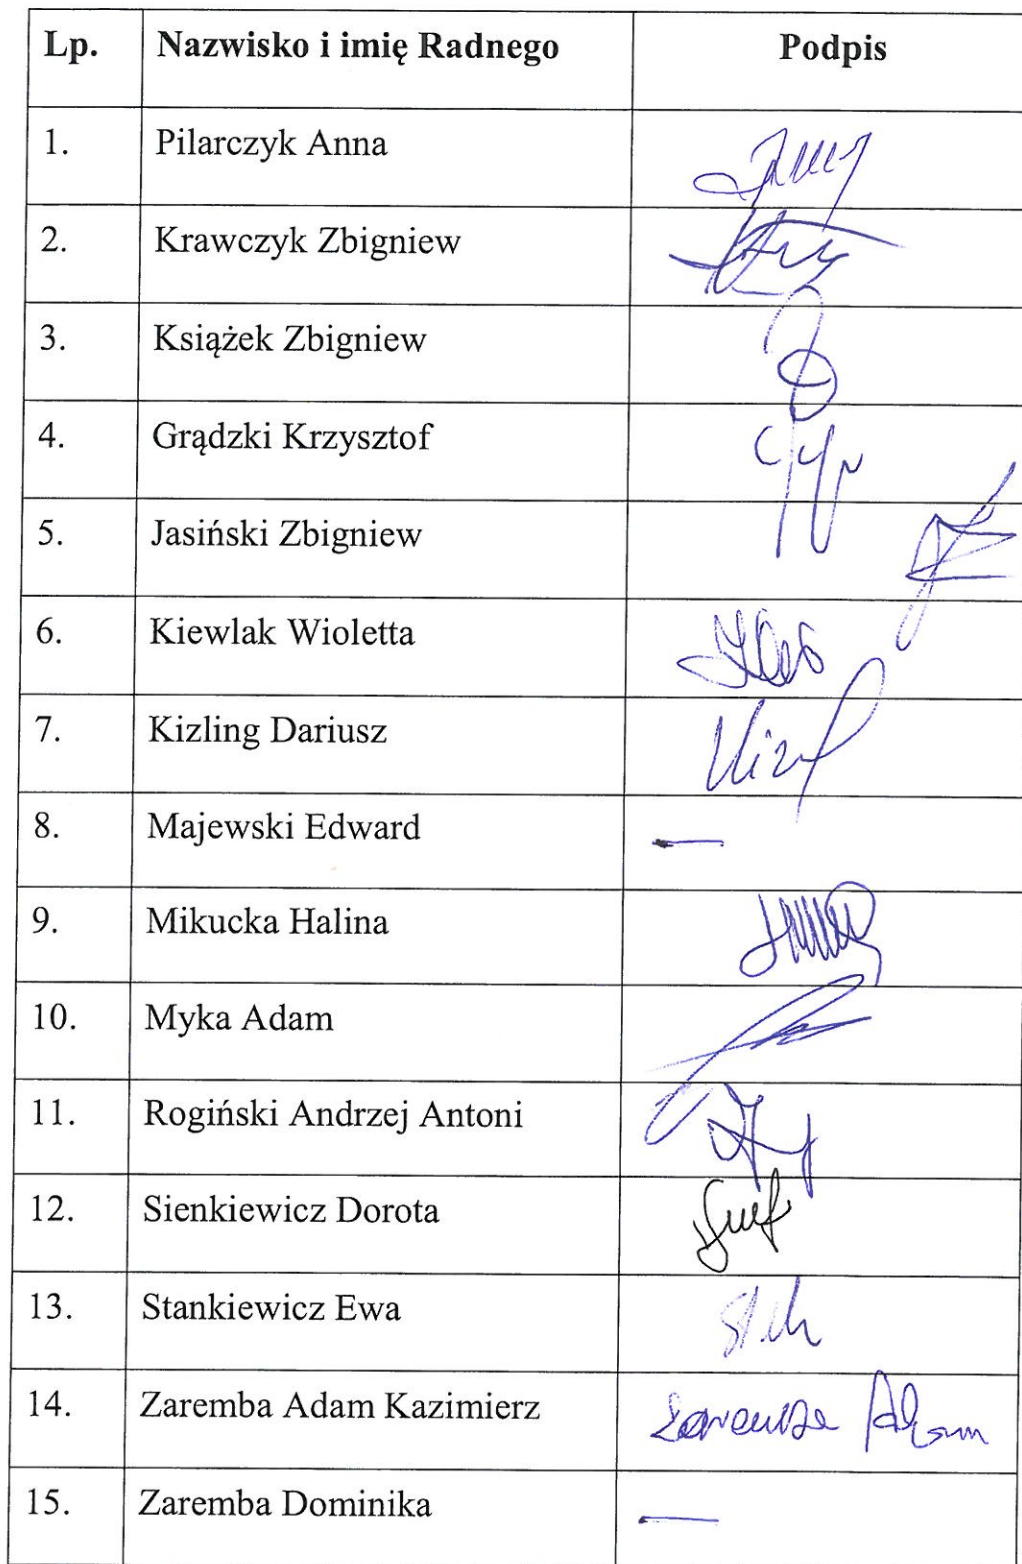 Lp. Nazwisko i imię Radnego Podpis
1. Pilarczyk Anna
2. Krawczyk Zbigniew
3. Książek Zbigniew
4. Grądzki Krzysztof
5. Jasiński Zbigniew
6. Kiewlak Wioletta
7. Kizling Dariusz
8. Majewski Edward —
9. Mikucka Halina
10. Myka Adam
11. Rogiński Andrzej Antoni
12. Sienkiewicz Dorota
13. Stankiewicz Ewa
14. Zaremba Adam Kazimierz Zaremba Adam
15. Zaremba Dominika —